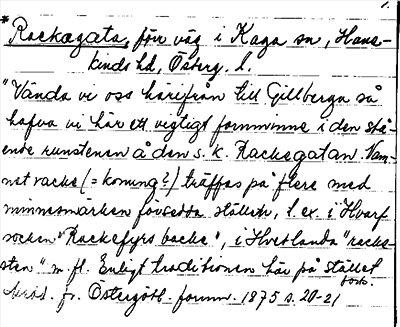 1.
* Rackegata, förr väg i Kaga sn, Hans-
kinds hd, Österg. l.
"Vända vi oss härifrån till Gillberga så
hafva vi här ett vigtigt fornminne i den stå-
ende runstenen å den s.k. Rackegatan. Nam-
net racke (= konung?) träffas på flere med
minnesmärken försedda ställen, t.ex. i Hvarf
socken "Rackefyrs backe", i Hvetlanda "racke-
sten" m. fl. Enligt traditionen här på stället
fortf.
Ant. f. Östergötl. fornm. 1875 s. 20-21